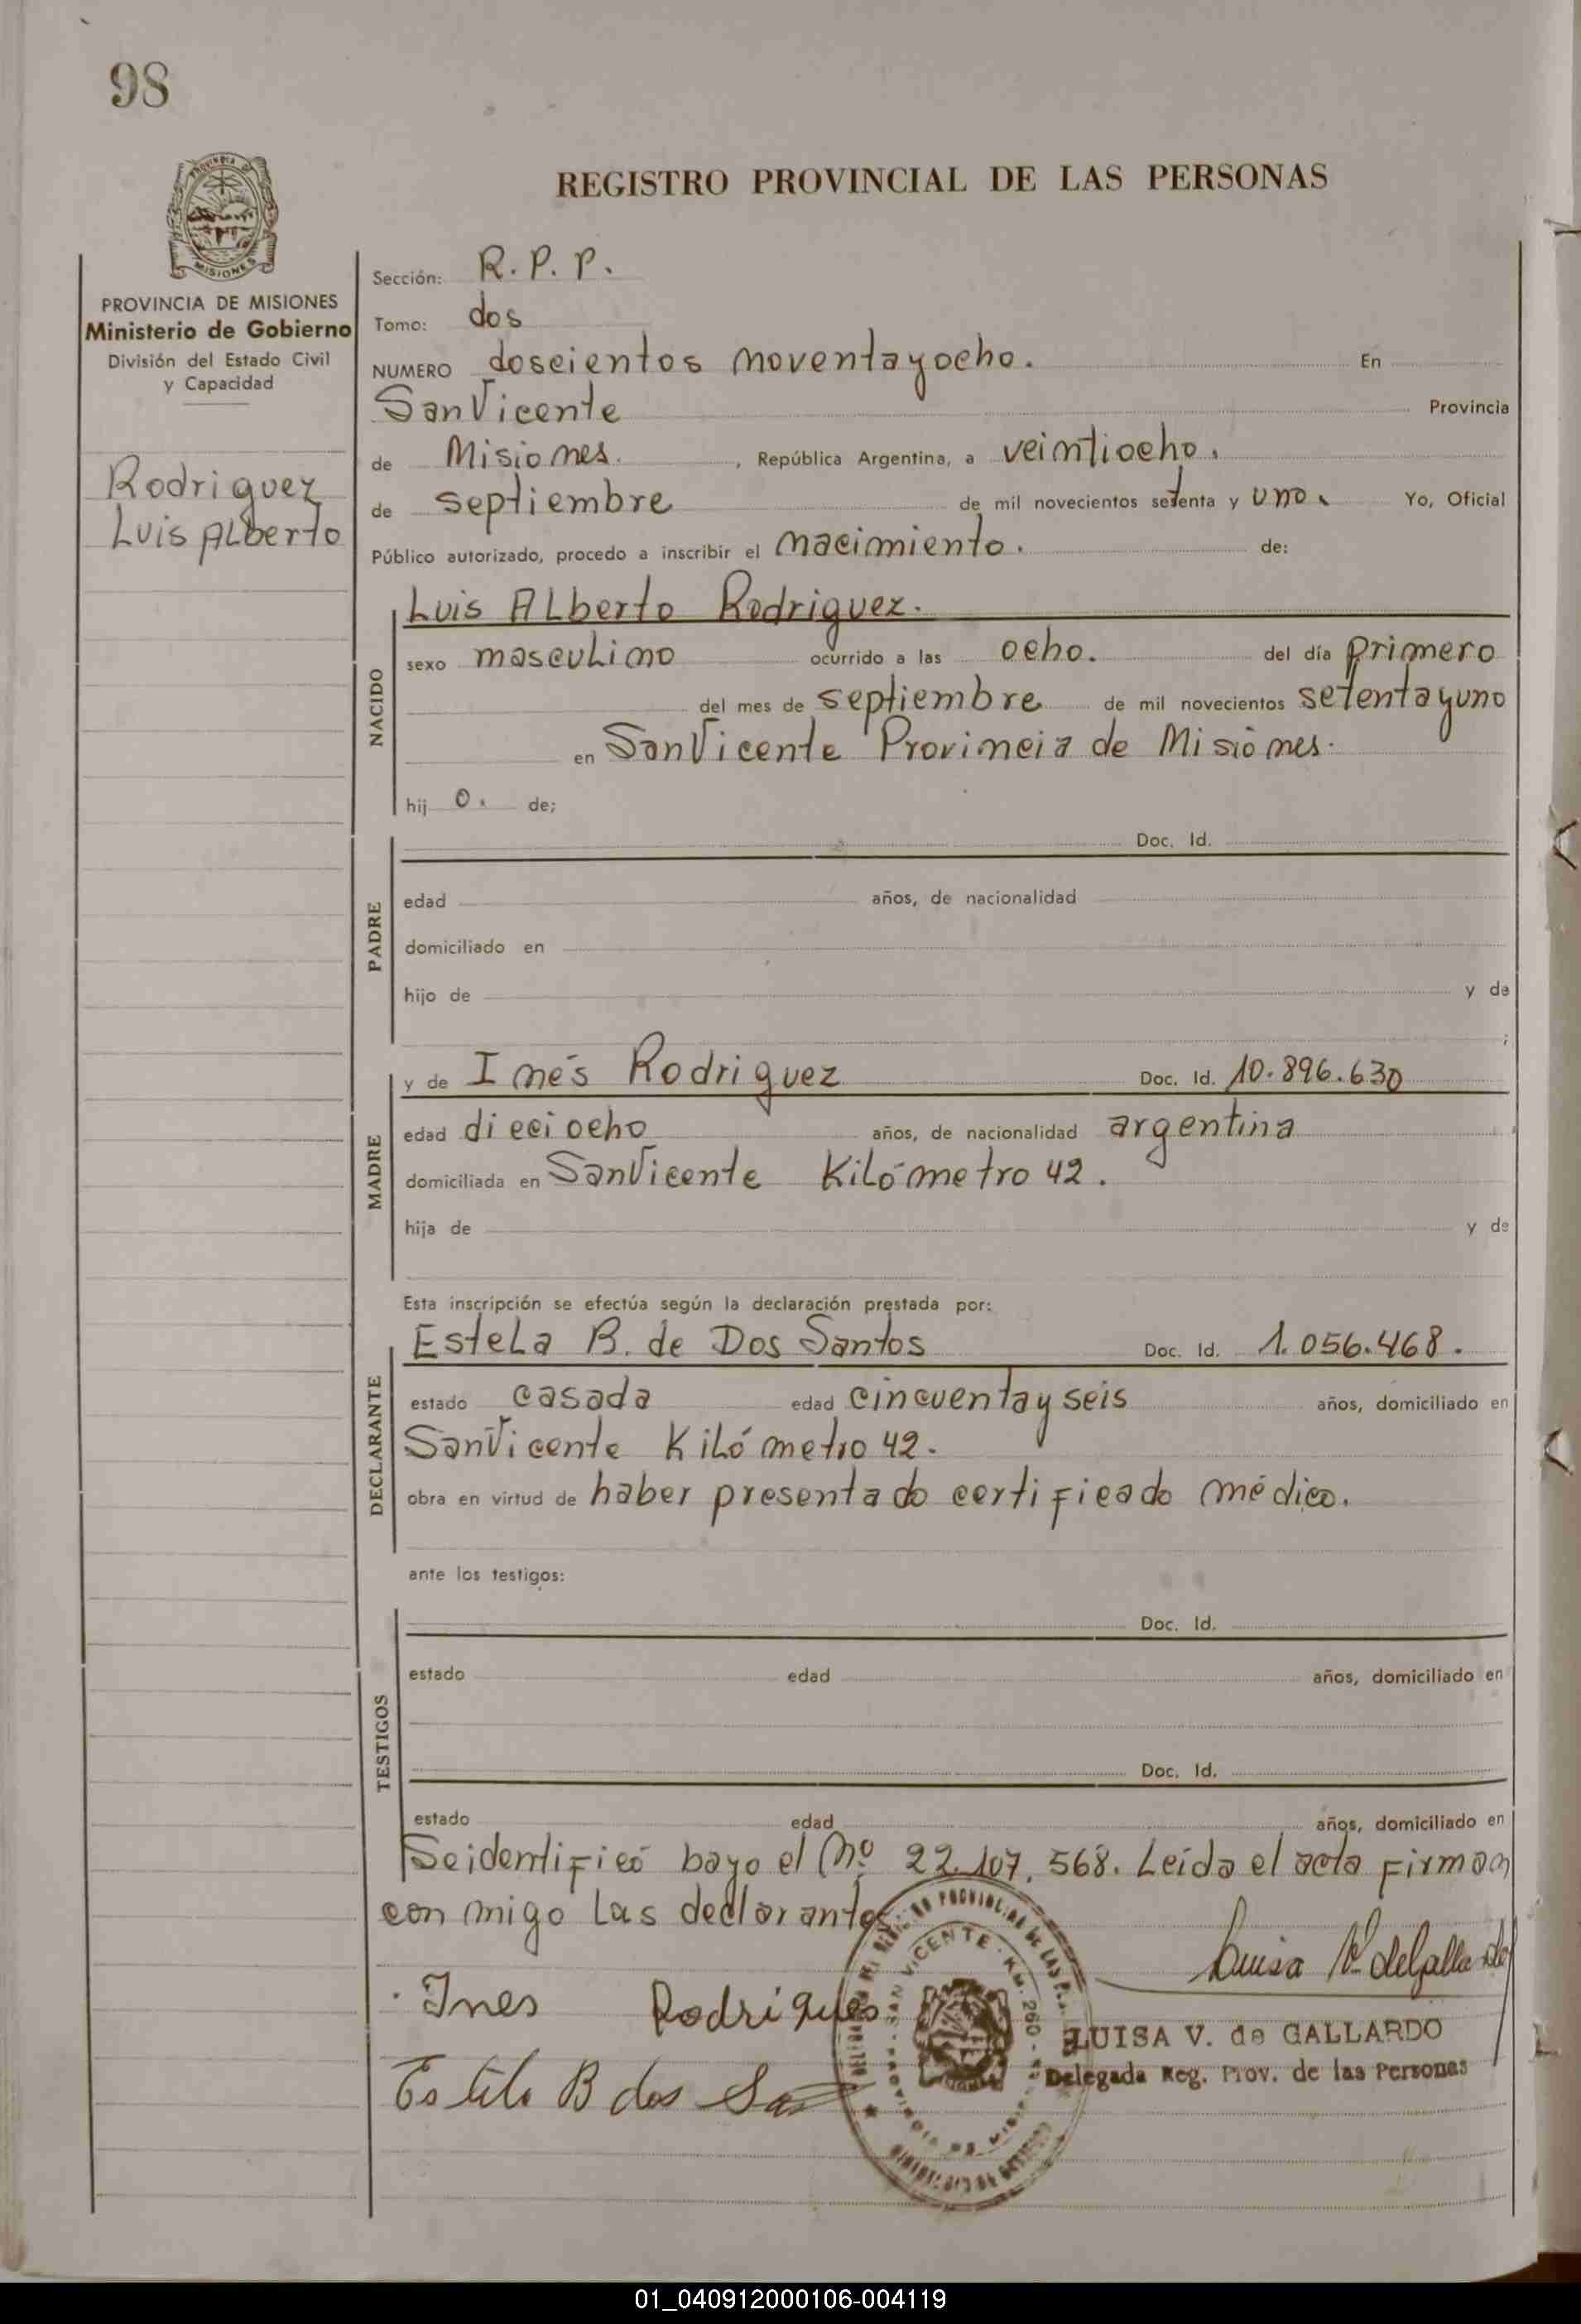 98
REGISTRO PROVINCIAL DE LAS PERSONAS
MISIONES
PROVINCIA DE MISIONES
Ministerio de Gobierno
División del Estado Civil
y Capacidad
Rodriguez
Luis ALberto
Sección: R. P. P.
Tomo: dos
NUMERO doscientos noventayocho. En
San Vicente Provincia
de Misiones. , República Argentina, a veintiocho.
de septiembre de mil novecientos setenta y uno. Yo, Oficial
Público autorizado, procedo a inscribir el nacimiento. de:
NACIDO
Luis ALberto Rodriguez.
sexo mascuLino ocurrido a las ocho. del día primero
del mes de septiembre de mil novecientos setentayuno
en San Vicente Provincia de Misiones.
hij o. de;
PADRE
Doc. Id.
edad años, de nacionalidad
domiciliado en
hijo de y de
;
MADRE
y de Inés Rodriguez Doc. Id. 10.896.630
edad dieciocho años, de nacionalidad argentina
domiciliada en San Vicente KiLómetro 42.
hija de y de
Esta inscripción se efectúa según la declaración prestada por:
DECLARANTE
EsteLa B. de Dos Santos Doc. Id. 1.056.468.
estado casada edad cincuentayseis años, domiciliado en
San Vicente KiLómetro 42.
obra en virtud de haber presentado certificado médico.
ante los testigos:
TESTIGOS
Doc. Id.
estado edad años, domiciliado en
Doc. Id.
estado edad años, domiciliado en
Se identificó bayo el Nº 22.107.568. Leída el acta firman
con migo Las declarantes.
Luisa V. de Gallardo
Ines Rodrigues
LUISA V. de GALLARDO
Delegada Reg. Prov. de las Personas
Estela B dos
SAN VICENTE - KM. 260
01_040912000106-004119